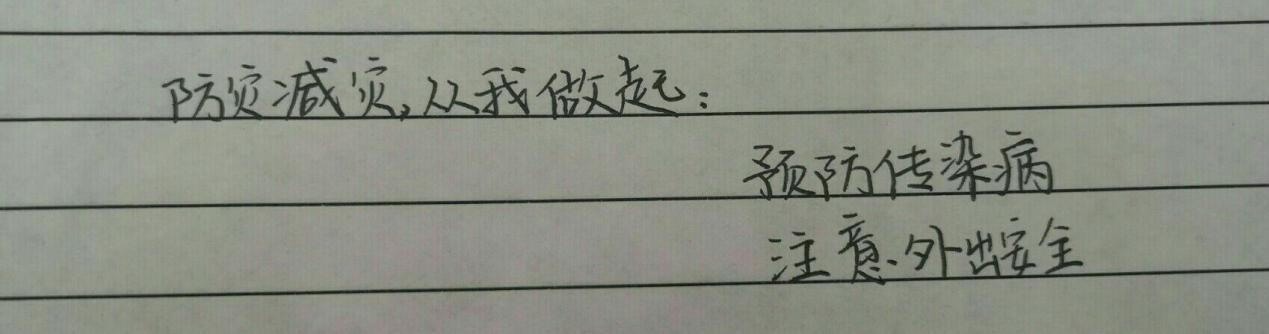 防灾减灾,从我做起:
预防传染病
注意外出安全